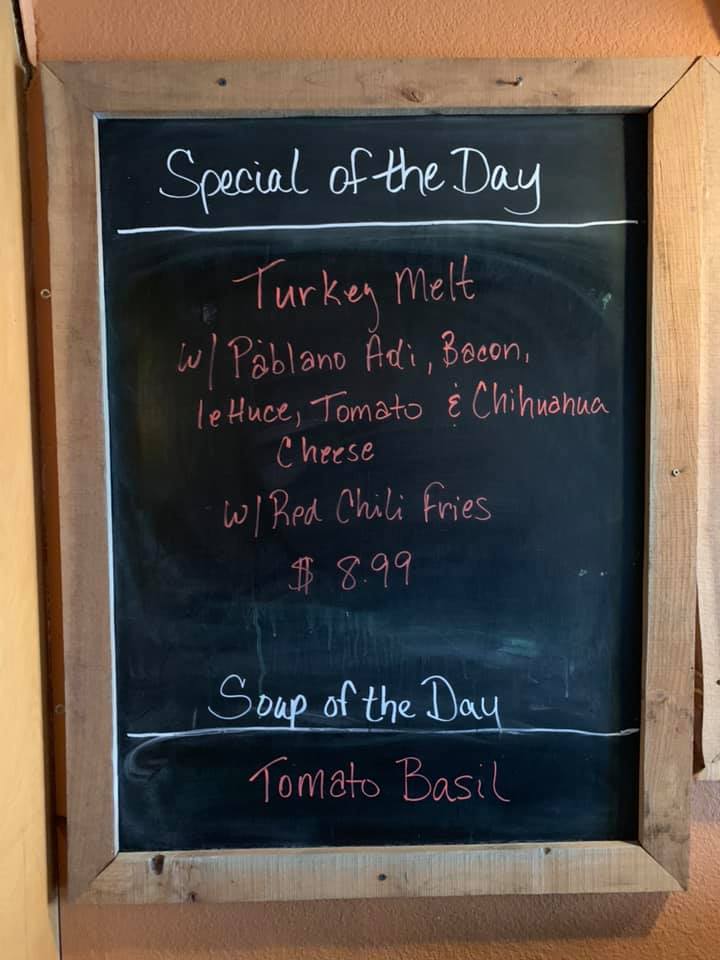 Special of the Day
Turkey Melt
w/ Pablano Adi, Bacon,
lettuce, Tomato & Chihuahua
Cheese
w/ Red Chili Fries
$ 8.99
Soup of the Day
Tomato Basil